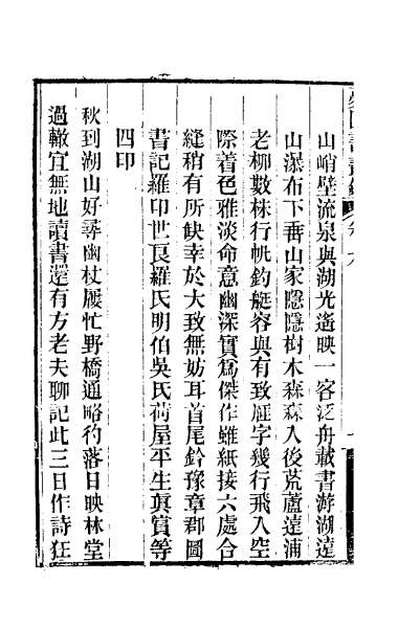 山峭壁流泉與湖光遙映一客泛舟載書游湖遠
山瀑布下垂山家隱隱樹木森森入後荒蘆遠浦
老柳數株行帆釣艇容與有致雁字幾行飛入空
際着色雅淡命意幽深實爲傑作雖紙接六處合
縫稍有所缺幸於大致無妨耳首尾鈐豫章郡圖
書記羅印世良羅氏明伯吳氏荷屋平生眞賞等
四印
秋到湖山好尋幽杖履忙野橋通略彴落日映林堂
過轍宜無地讀書還有方老夫聊記此三日作詩狂